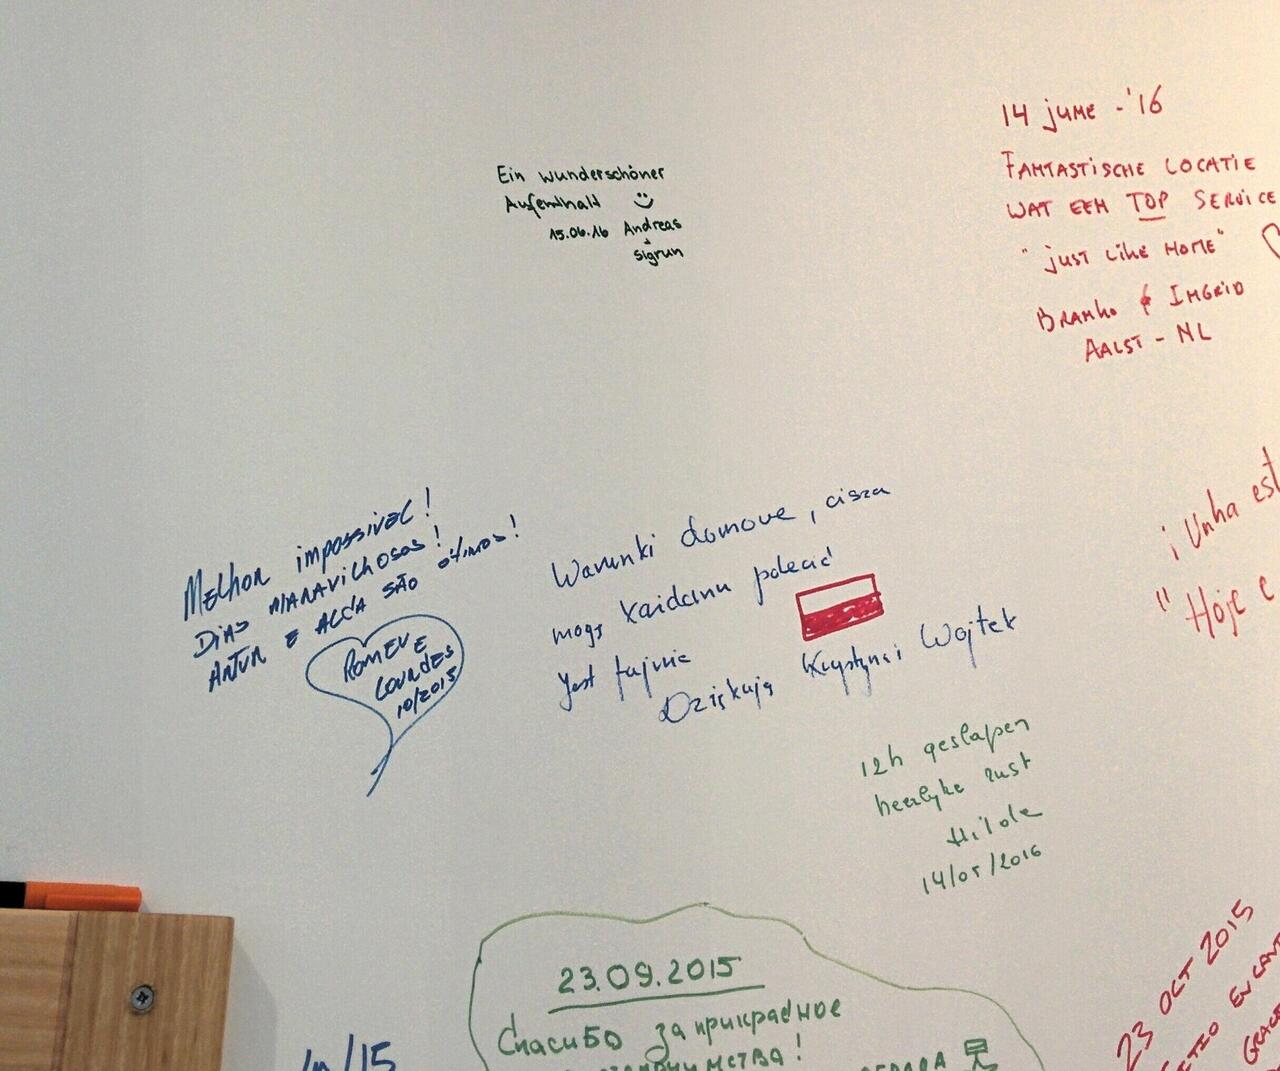 Ein wunderschöner
Aufenthalt
15.06.16 Andreas
+
Sigrun
14 JUNE - '16
FANTASTISCHE LOCATIE
WAT EEN TOP SERVICE
"JUST LIKE HOME"
BRANKO & INGRID
AALST - NL
MELHOR IMPOSSIVEL!
DIAS MARAVILHOSOS!
ARTUR E ALDA SÃO ÓTIMOS!
ROMEU E
LOURDES
10/2015
Warunki domowe, cisza
mogę każdemu polecić
Jest fajnie
Dziękują Krystyna i Wojtek
12h geslapen
heerlyke rust
Hilde
14/05/2016
¡ Unha est
" Hoje e
23.09.2015
Спасибо за прикрасное
!
/15
23 OCT 2015